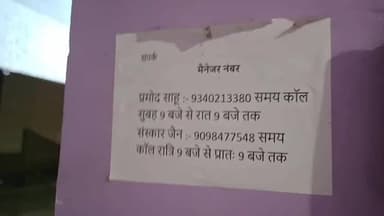 संपर्क
मैनेजर नंबर
प्रमोद साहू :- 9340213380 समय कॉल
सुबह 9 बजे से रात 9 बजे तक
संस्कार जैन :- 9098477548 समय
कॉल रात्रि 9 बजे से प्रातः 9 बजे तक